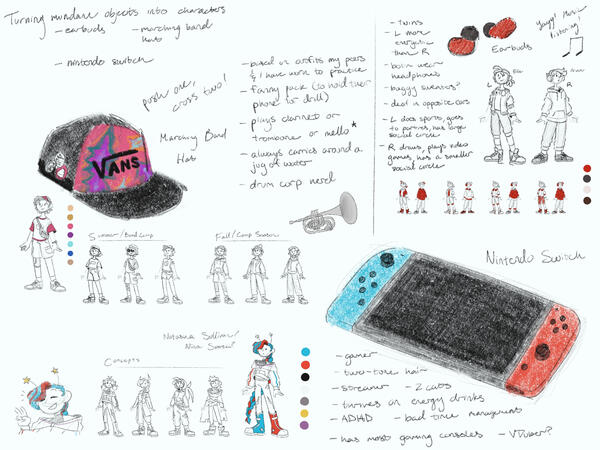 Turning mundane objects into characters
- earbuds
- marching band hat
- nintendo switch
push one, cross two!
VANS
Marching Band
Hat
- based on outfits my peers
& I have worn to practice
- fanny pack (to hold their
phone for drill)
- plays clarinet or
trombone or mello *
- always carries around a
jug of water
- drum corp nerd
Summer/Band Camp
Fall/Comp Season
- twins
- L more
energetic
than R
- both wear
headphones
- baggy sweats?
- deaf in opposite ears
- L does sports, goes
to parties, has large
social circle
- R draws, plays video
games, has a smaller
social circle
Earbuds
Yayy! Music
listening!
L
R
Nintendo Switch
- gamer
- two-tone hair
- streamer
- 2 cats
- thrives on energy drinks
- ADHD
- bad time management
- has most gaming consoles
- VTuber?
Natasha
Concepts